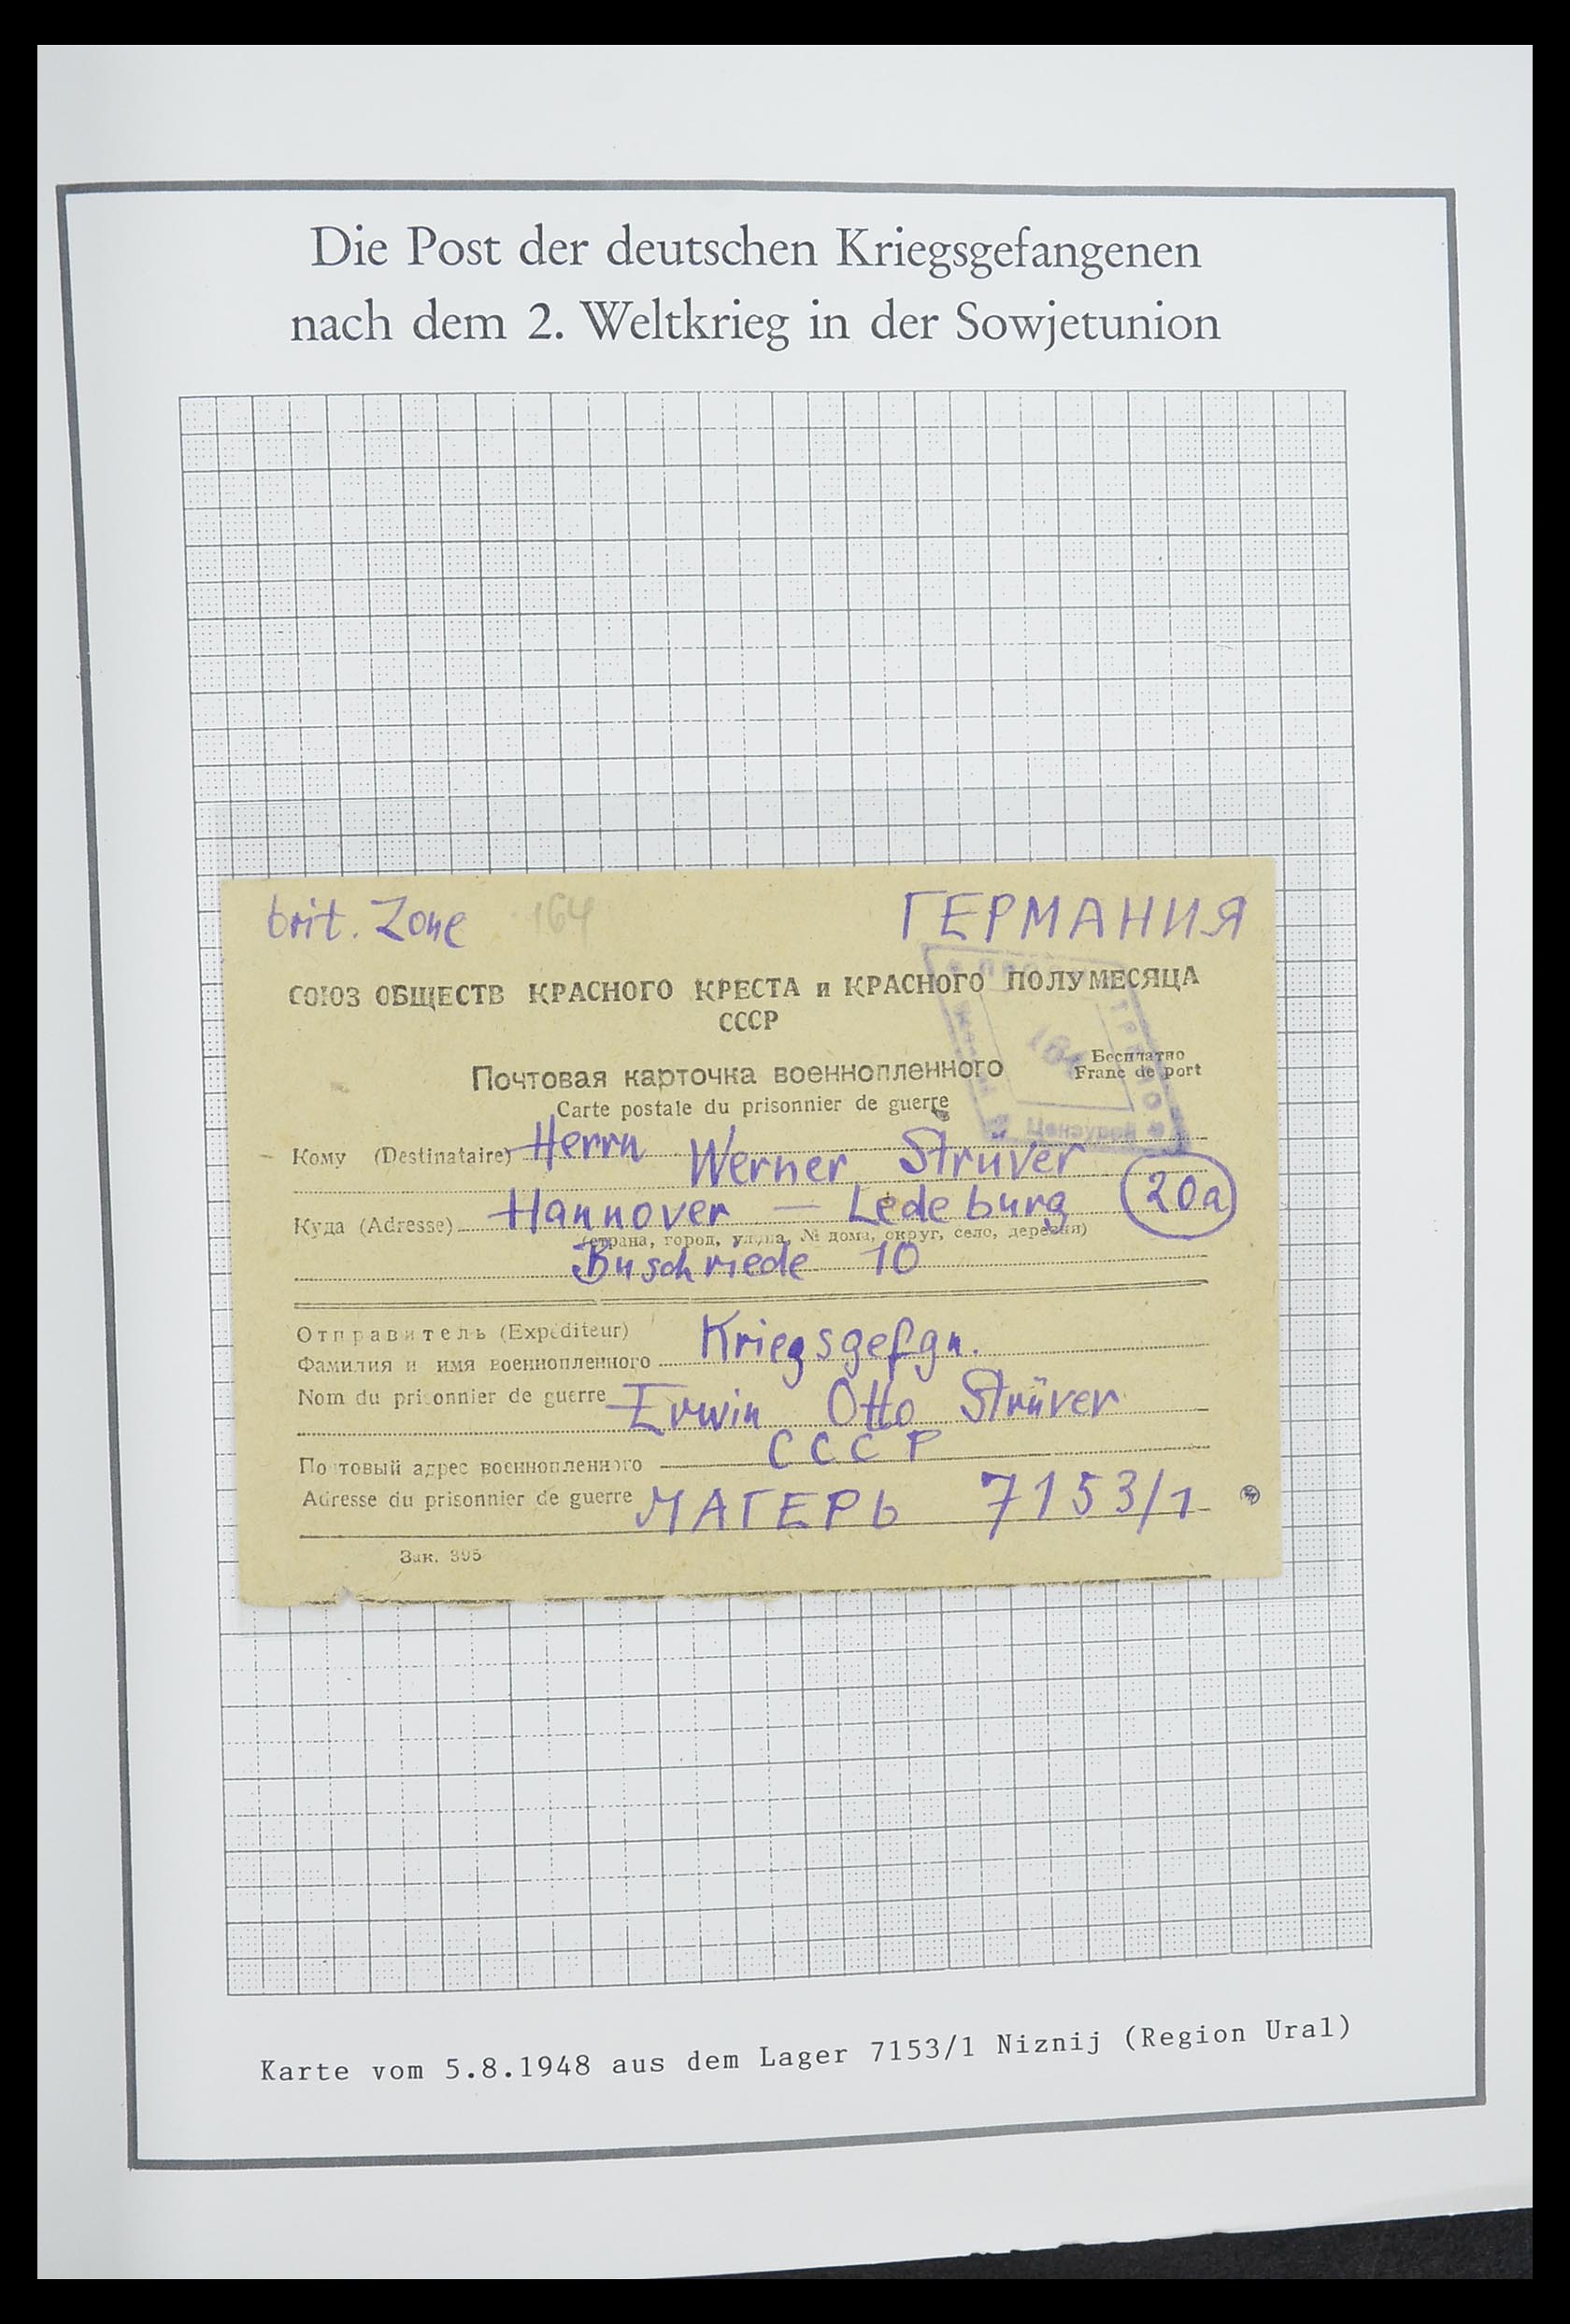 Die Post der deutschen Kriegsgefangenen
nach dem 2. Weltkrieg in der Sowjetunion
brit. Zone 164 ГЕРМАНИЯ
СОЮЗ ОБЩЕСТВ КРАСНОГО КРЕСТА и КРАСНОГО ПОЛУМЕСЯЦА
СССР
Почтовая карточка военнопленного
Бесплатно
Franc de port
Carte postale du prisonnier de guerre
Кому (Destinataire) Herrn Werner Strüver
Куда (Adresse) Hannover — Ledeburg 20a
(страна, город, улица, № дома, округ, село, деревня)
Buschriede 10
Отправитель (Expéditeur)
Фамилия и имя военнопленного Kriegsgefgn.
Nom du prisonnier de guerre Erwin Otto Strüver
Почтовый адрес военнопленного СССР
Adresse du prisonnier de guerre ЛАГЕРЬ 7153/1
Зак. 395
Karte vom 5.8.1948 aus dem Lager 7153/1 Niznij (Region Ural)